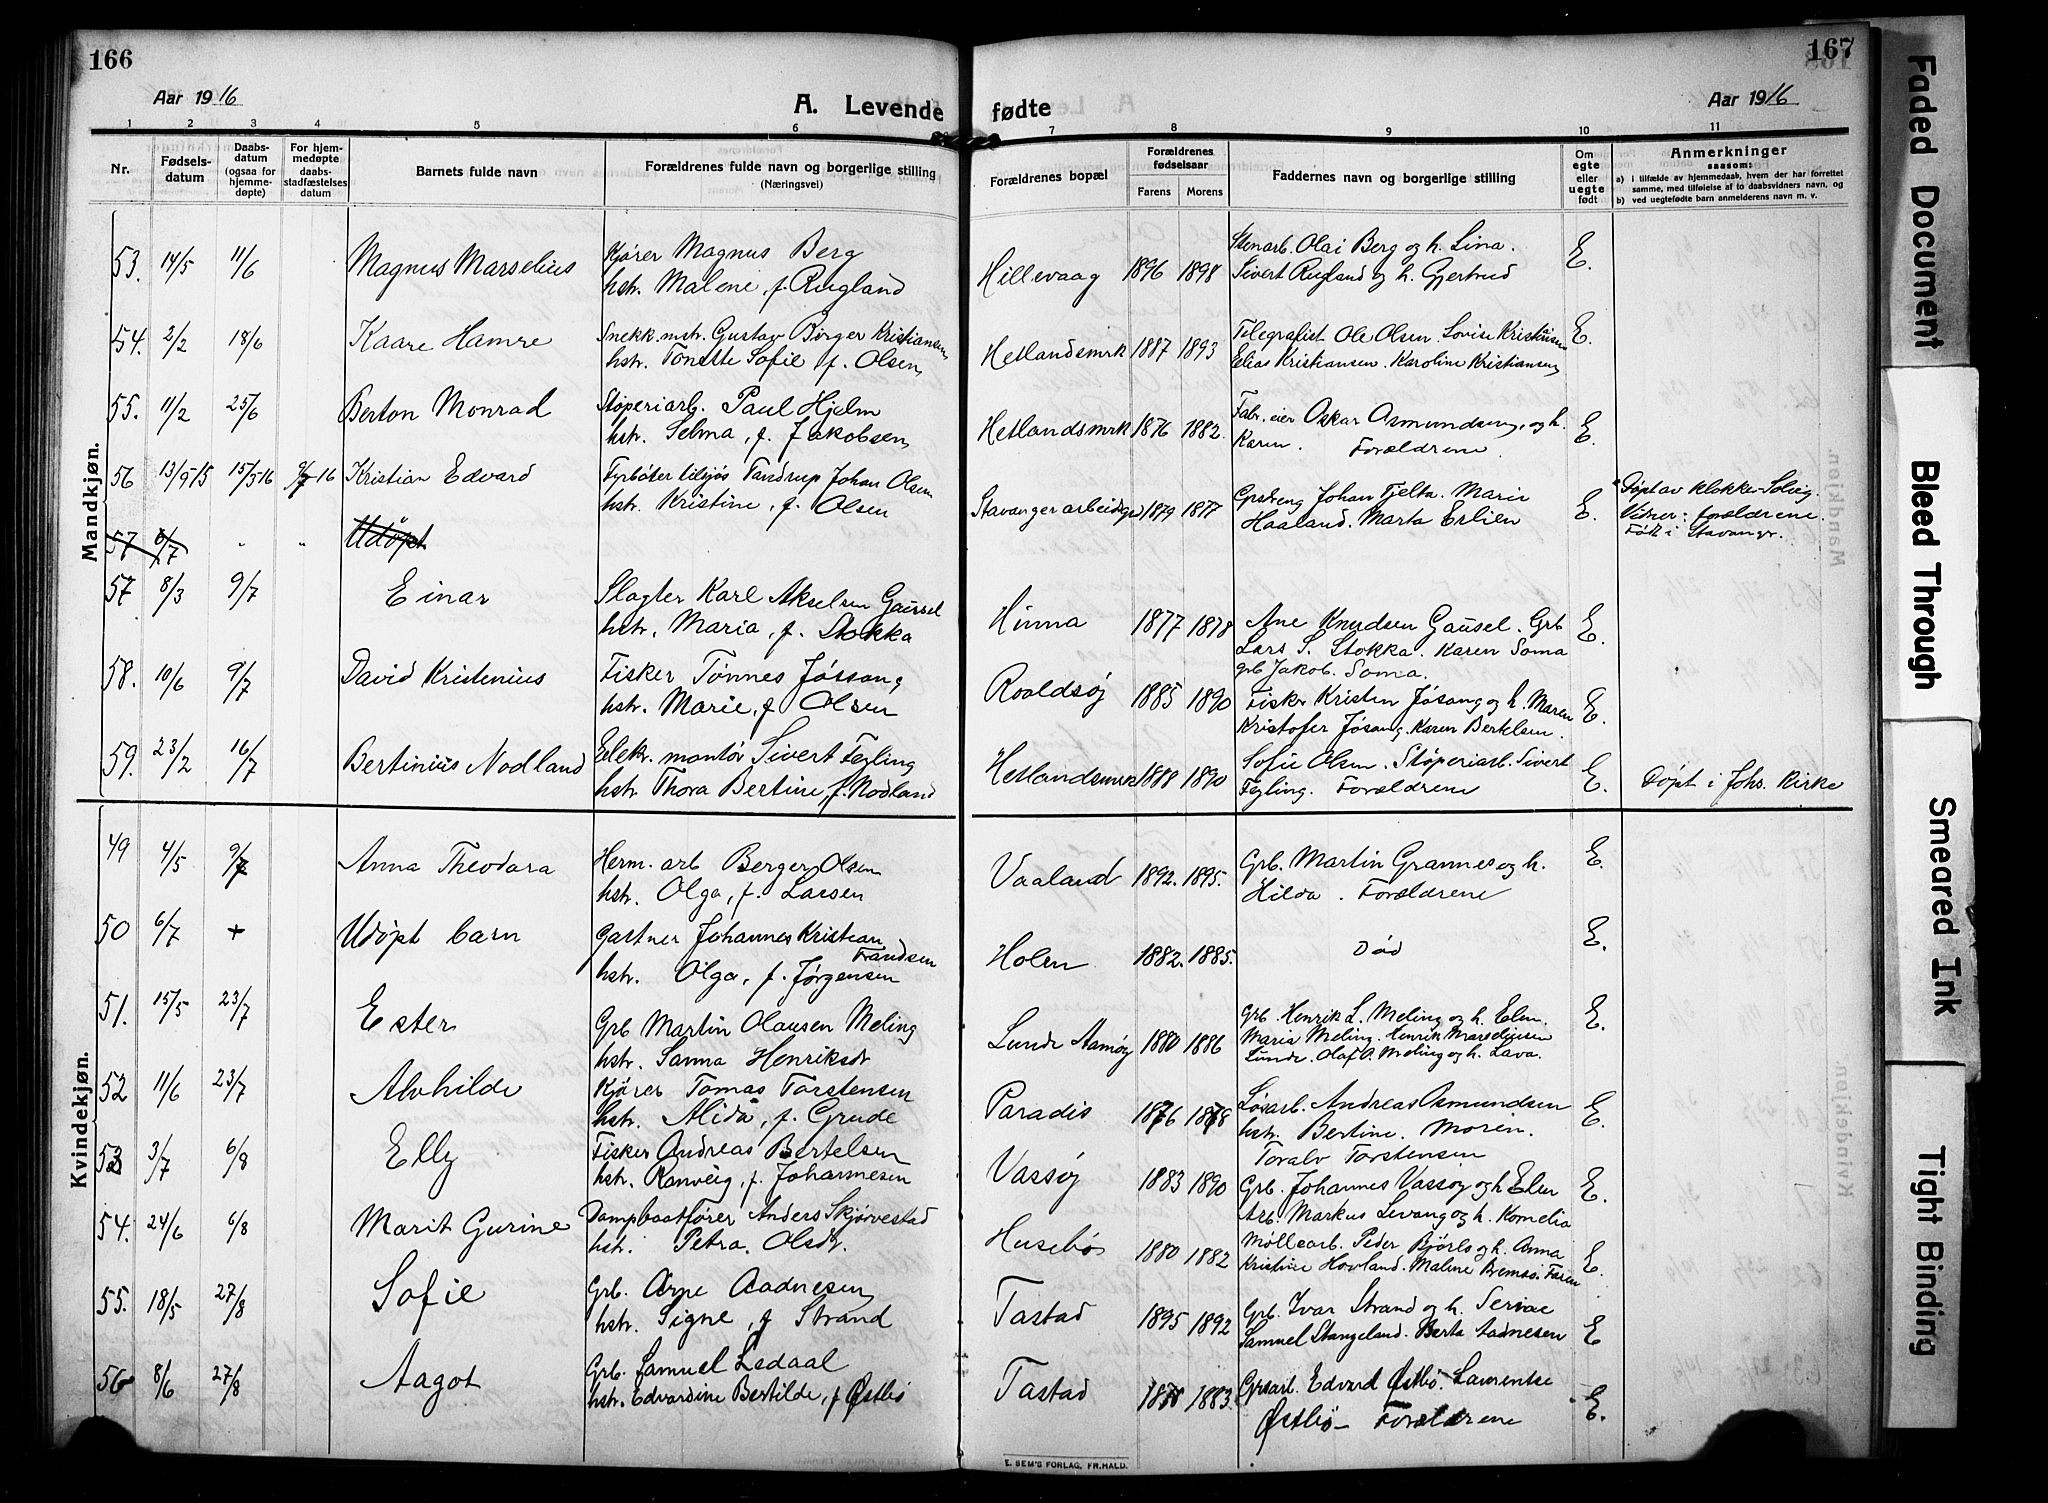 166
Aar 1916
A. Levende
1 2 3 4 5 6
Nr.
Fødsels-
datum
Daabs-
datum
(ogsaa for
hjemme-
døpte)
For hjem-
medøpte
daabs-
stadfæstelses
datum
Barnets fulde navn
Forældrenes fulde navn og borgerlige stilling
(Næringsvei)
Mandkjøn.
53. 14/5 11/6 Magnus Marselius Kjører Magnus Berg
hstr. Malene, f. Rugland
54. 2/2 18/6 Kaare Hamre Snekk.mstr. Gustav Birger Kristiansen
hstr. Tonette Sofie f. Olsen
55. 11/2 25/6 Berton Monrad Støperiarb. Paul Hjelm
hstr. Selma, f. Jakobsen
56 13/9-15 15/5-16 9/7-16 Kristian Edvard Fyrbøter tilsjøs Tandrup Johan Olsen
hstr. Kristine, f. Olsen
57 6/7 " " Udøpt
57 8/3 9/7 Einar Slagter Karl Akselsen Gausel
hstr. Maria, f. Stokka
58. 10/6 9/7 David Kristenius Fisker Tønnes Jøssang
hstr. Marie, f Olsen
59. 23/2 16/7 Bertinius Nodland Elekr. montør Sivert Fegling
hstr. Thora Bertine, f. Nodland
Kvindekjøn.
49 4/5 9/7 Anna Theodora Herm. arb Berger Olsen
hstr. Olga, f. Larsen
50 6/7 + Udøpt barn Gartner Johannes Kristian
Frandsen
hstr. Olga, f. Jørgensen
51. 15/5 23/7 Ester Grb Martin Olausen Meling
hstr. Sanna Henriksdr
52 11/6 23/7 Alvhilde Kjører Tomas Torstensen
hstr. Alida, f. Grude
53 3/7 6/8 Elly Fisker Andreas Bertelsen
hstr. Ranveig, f. Johannesen
54. 24/6 6/8 Marit Gurine Dampbaatfører Anders Skjørvestad
hstr. Petra. Olsdr.
55. 18/5 27/8 Sofie Grb. Arne Aadnesen
hstr. Signe, f Strand
56 8/6 27/8 Aagot Grb. Samuel Ledaal
hstr. Edvardine Bertilde, f Østbø
167
Aar 1916
fødte
7 8 9 10 11
Forældrenes bopæl
Forældrenes
fødselsaar
Farens Morens
Faddernes navn og borgerlige stilling
Om
egte
eller
uegte
født
Anmerkninger
saasom:
a) i tilfælde av hjemmedaab, hvem der har forrettet
samme, med tilføielse af to daabsvidners navn, og
b) ved uegtefødte barn anmelderens navn m. v.
Hillevaag 1896 1898 Stenarb. Olai Berg og h. Lina. E.
Sivert Rugland og h. Gjertrud
Hetlandsmrk 1887 1893 Telegrafist Ole Olsen. Lovise Kristiansen E.
Elias Kristiansen. Karoline Kristiansen
Hetlandsmrk 1876 1882. Fabr. eier Oskar Osmundsen, og h. E.
Karen. Forældrene.
Stavanger arbeidsgrd 1879 1877 Johan Tjelta. Marie E.
Haaland. Marta Erlien
Døpt av klokker Solvig.
Vidner: forældrene.
Født i Stavangr.
Hinna 1877 1878 Ane Knudsen Gausel. Grb E.
Lars S. Stokka. Karen Soma
grb Jakob. Soma.
Roaldsøj 1885 1890 Fisker Kristen Jøsang og h. Maren E.
Kristofer Jøsang. Karen Bertelsen.
Hetlandsmrk 1888 1890 Sofie Olsen. Støperiarb. Sivert E. Døpt i Johs. Kirke
Fegling. Forældrene
Vaaland 1892. 1895. Grb. Martin Grannes og h. E.
Hilda. Forældrene
Holen 1882. 1885. Død E.
Lunde Aamøy 1880 1886 Grb. Henrik L. Meling og h. Elen. E.
Maria Meling. Henrik Marseliusen
Lunde. Olaf A. Meling og h. Lava.
Paradis 1876 1878 Løsarb. Andreas Osmundsen E.
hstr. Bertine. Moren.
Toralv Torstensen
Vassøy 1883 1890 Grb. Johannes Vassøy og h Elen E.
Arb. Markus Levang og h. Kornelia
Husebø 1880 1882 Møllearb. Peder og h. Anna E.
Kristine Hovland. Malene Faren
Tastad 1895 1892 Grb. Ivar Strand og h. Serine E
Samuel Stangeland. Berta Aadnesen
Tastad 1878 1883. Grsarb. Edvard Østbø. Laurentse E.
Østbø – Forældrene
E. SEM'S FORLAG, FR.HALD.
Faded Document
Bleed Through
Smeared Ink
Tight Binding